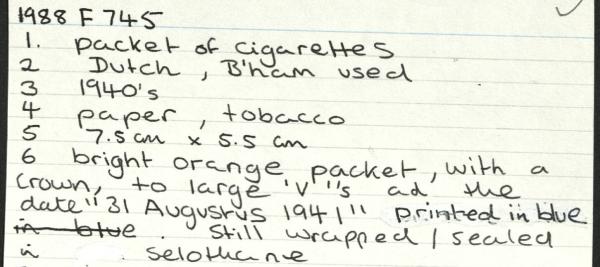 1988 F 745
1. packet of cigarettes
2 Dutch, B'ham used
3 1940's
4 paper, tobacco
5 7.5 cm x 5.5 cm
6 bright orange packet, with a
crown, to large 'V''s ad the
date "31 Augustus 1941" printed in blue
in blue. Still wrapped / sealed
in selothane